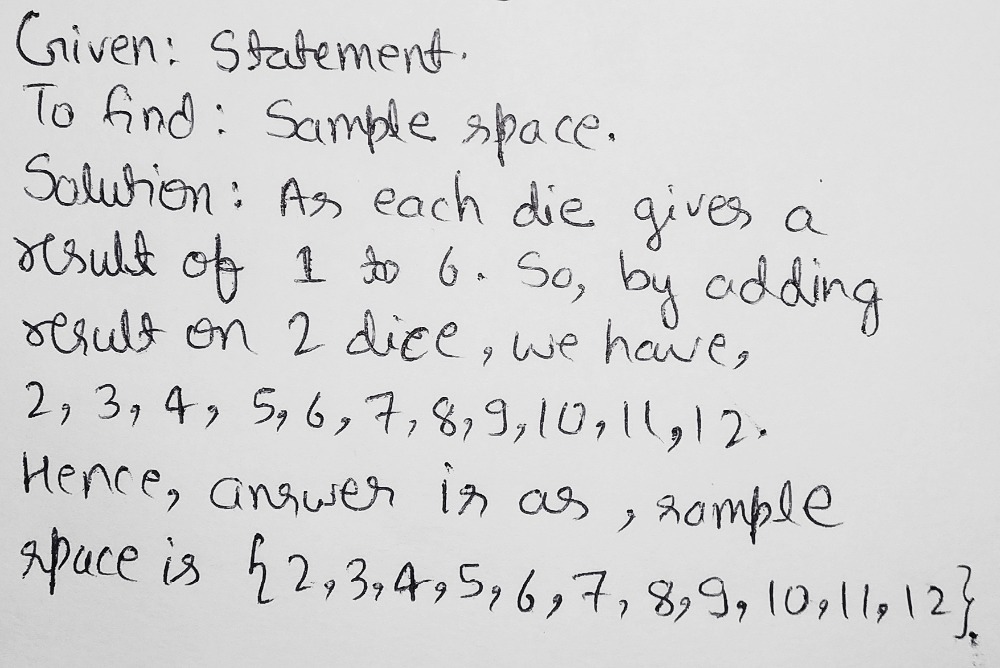 Given: Statement.
To find: Sample space.
Solution: As each die gives a
result of 1 to 6. So, by adding
result on 2 dice, we have,
2, 3, 4, 5, 6, 7, 8, 9, 10, 11, 12.
Hence, answer is as, sample
space is {2, 3, 4, 5, 6, 7, 8, 9, 10, 11, 12}.